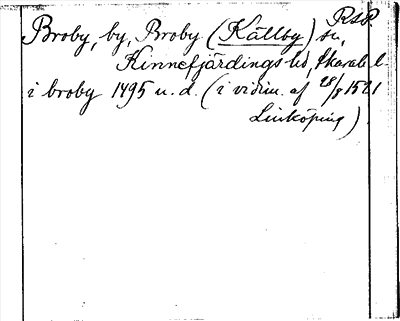 RAP.
Broby, by, Broby (Källby) sn,
Kinnefjärdings hd, Skarab. l.
i broby 1495 u. d. (i vidim. af 28/8 1521
Linköping).